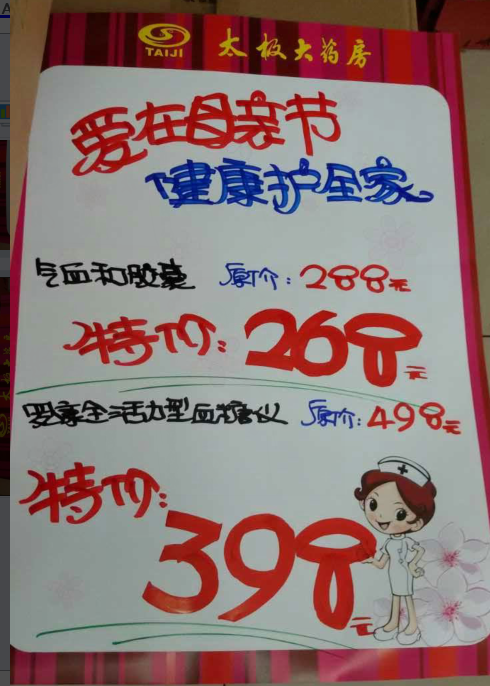 TAIJI 太极大药房
爱在母亲节
健康护全家
气血和胶囊 原价:288元
特价:268元
罗康全活力型血糖仪 原价:498元
特价:
398元